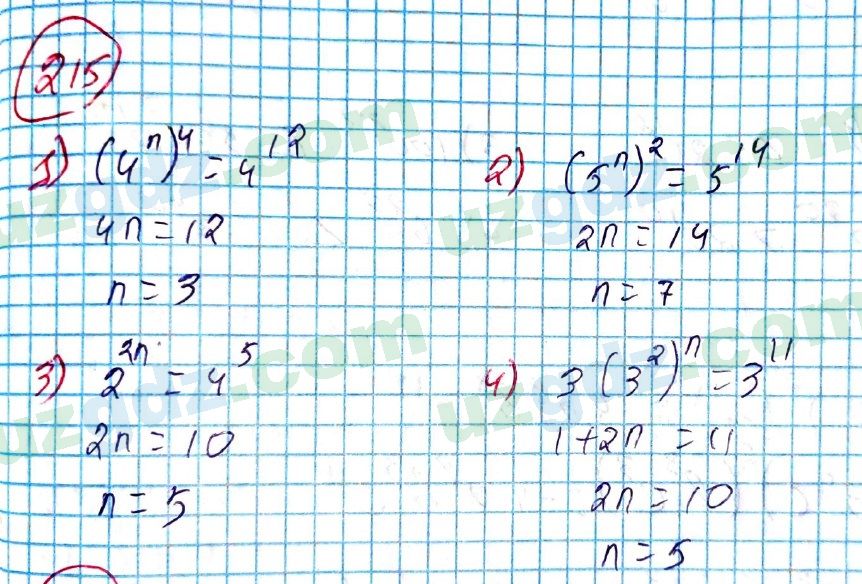 215
1) (4ⁿ)⁴ = 4¹²
4n = 12
n = 3
2) (5ⁿ)² = 5¹⁴
2n = 14
n = 7
3) 2²ⁿ = 4⁵
2n = 10
n = 5
4) 3(3²)ⁿ = 3¹¹
1+2n = 11
2n = 10
n = 5
uzgdz.com
uzgdz.com
uzgdz.com
uzgdz.com